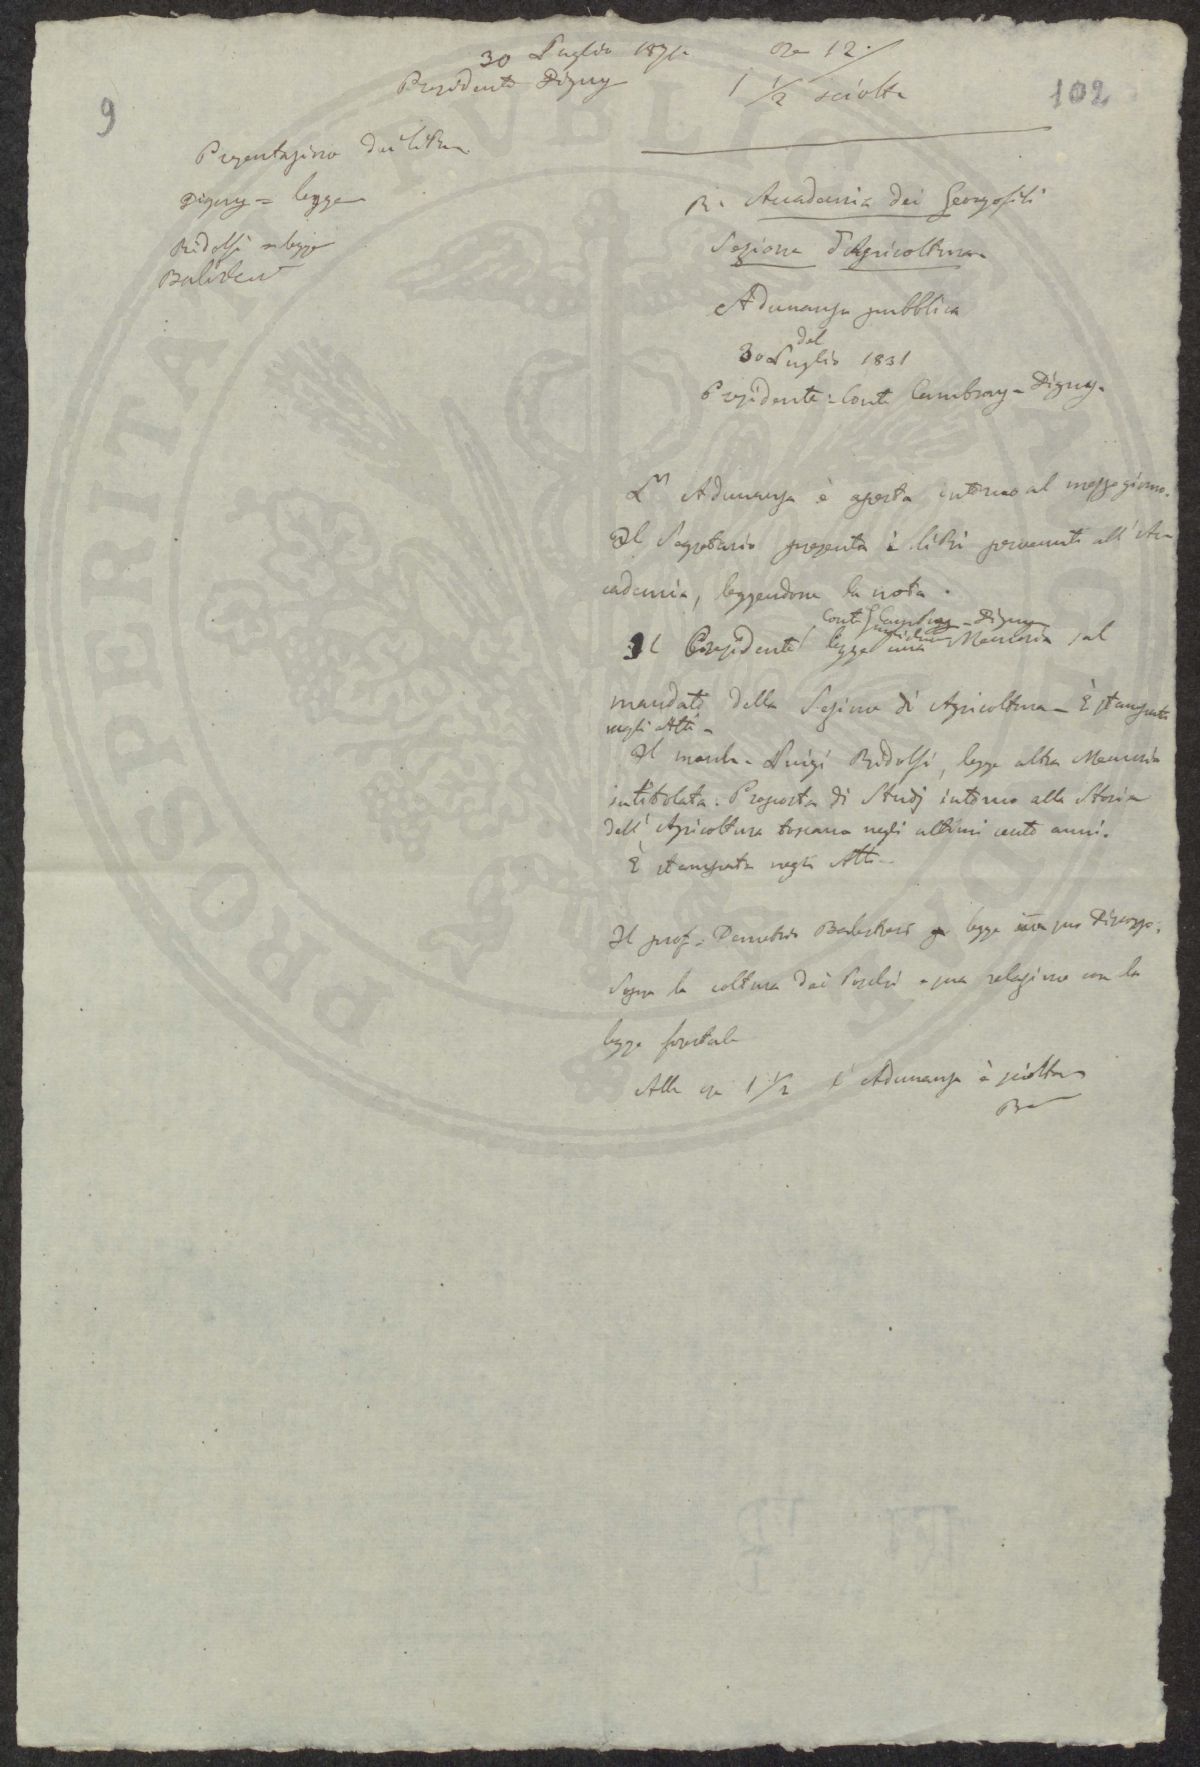 30 Luglio 1871 ore 12.
Presidente Digny 1 1/2 sciolta
9
102
Presentazione dei libri
Digny = legge
Ridolfi = legge
R. Accademia dei Georgofili
Sezione d'Agricoltura
Adunanza pubblica
del
30 Luglio 1831
Presidente: Conte Cambray-Digny.
L' Adunanza è aperta intorno al mezzogiorno.
Il Segretario presenta i libri pervenuti all' Ac
cademia, leggendone la nota.
Conte Cambray-Digny
Il Presidente legge una Memoria sul
mandato della Sezione di Agricoltura - È stampata
negli Atti -
Il march. Luigi Ridolfi, legge altra Memoria
intitolata: Proposta di Studj intorno alla Storia
dell' Agricoltura toscana negli ultimi cento anni.
È stampata negli Atti -
Il prof. Demetrio legge suo Discorso:
Sopra la coltura dei boschi e sua relazione con la
legge forestale
Alle ore 1 1/2 l' Adunanza è sciolta
PROSPERITATI PVBLICAE AVGENDAE